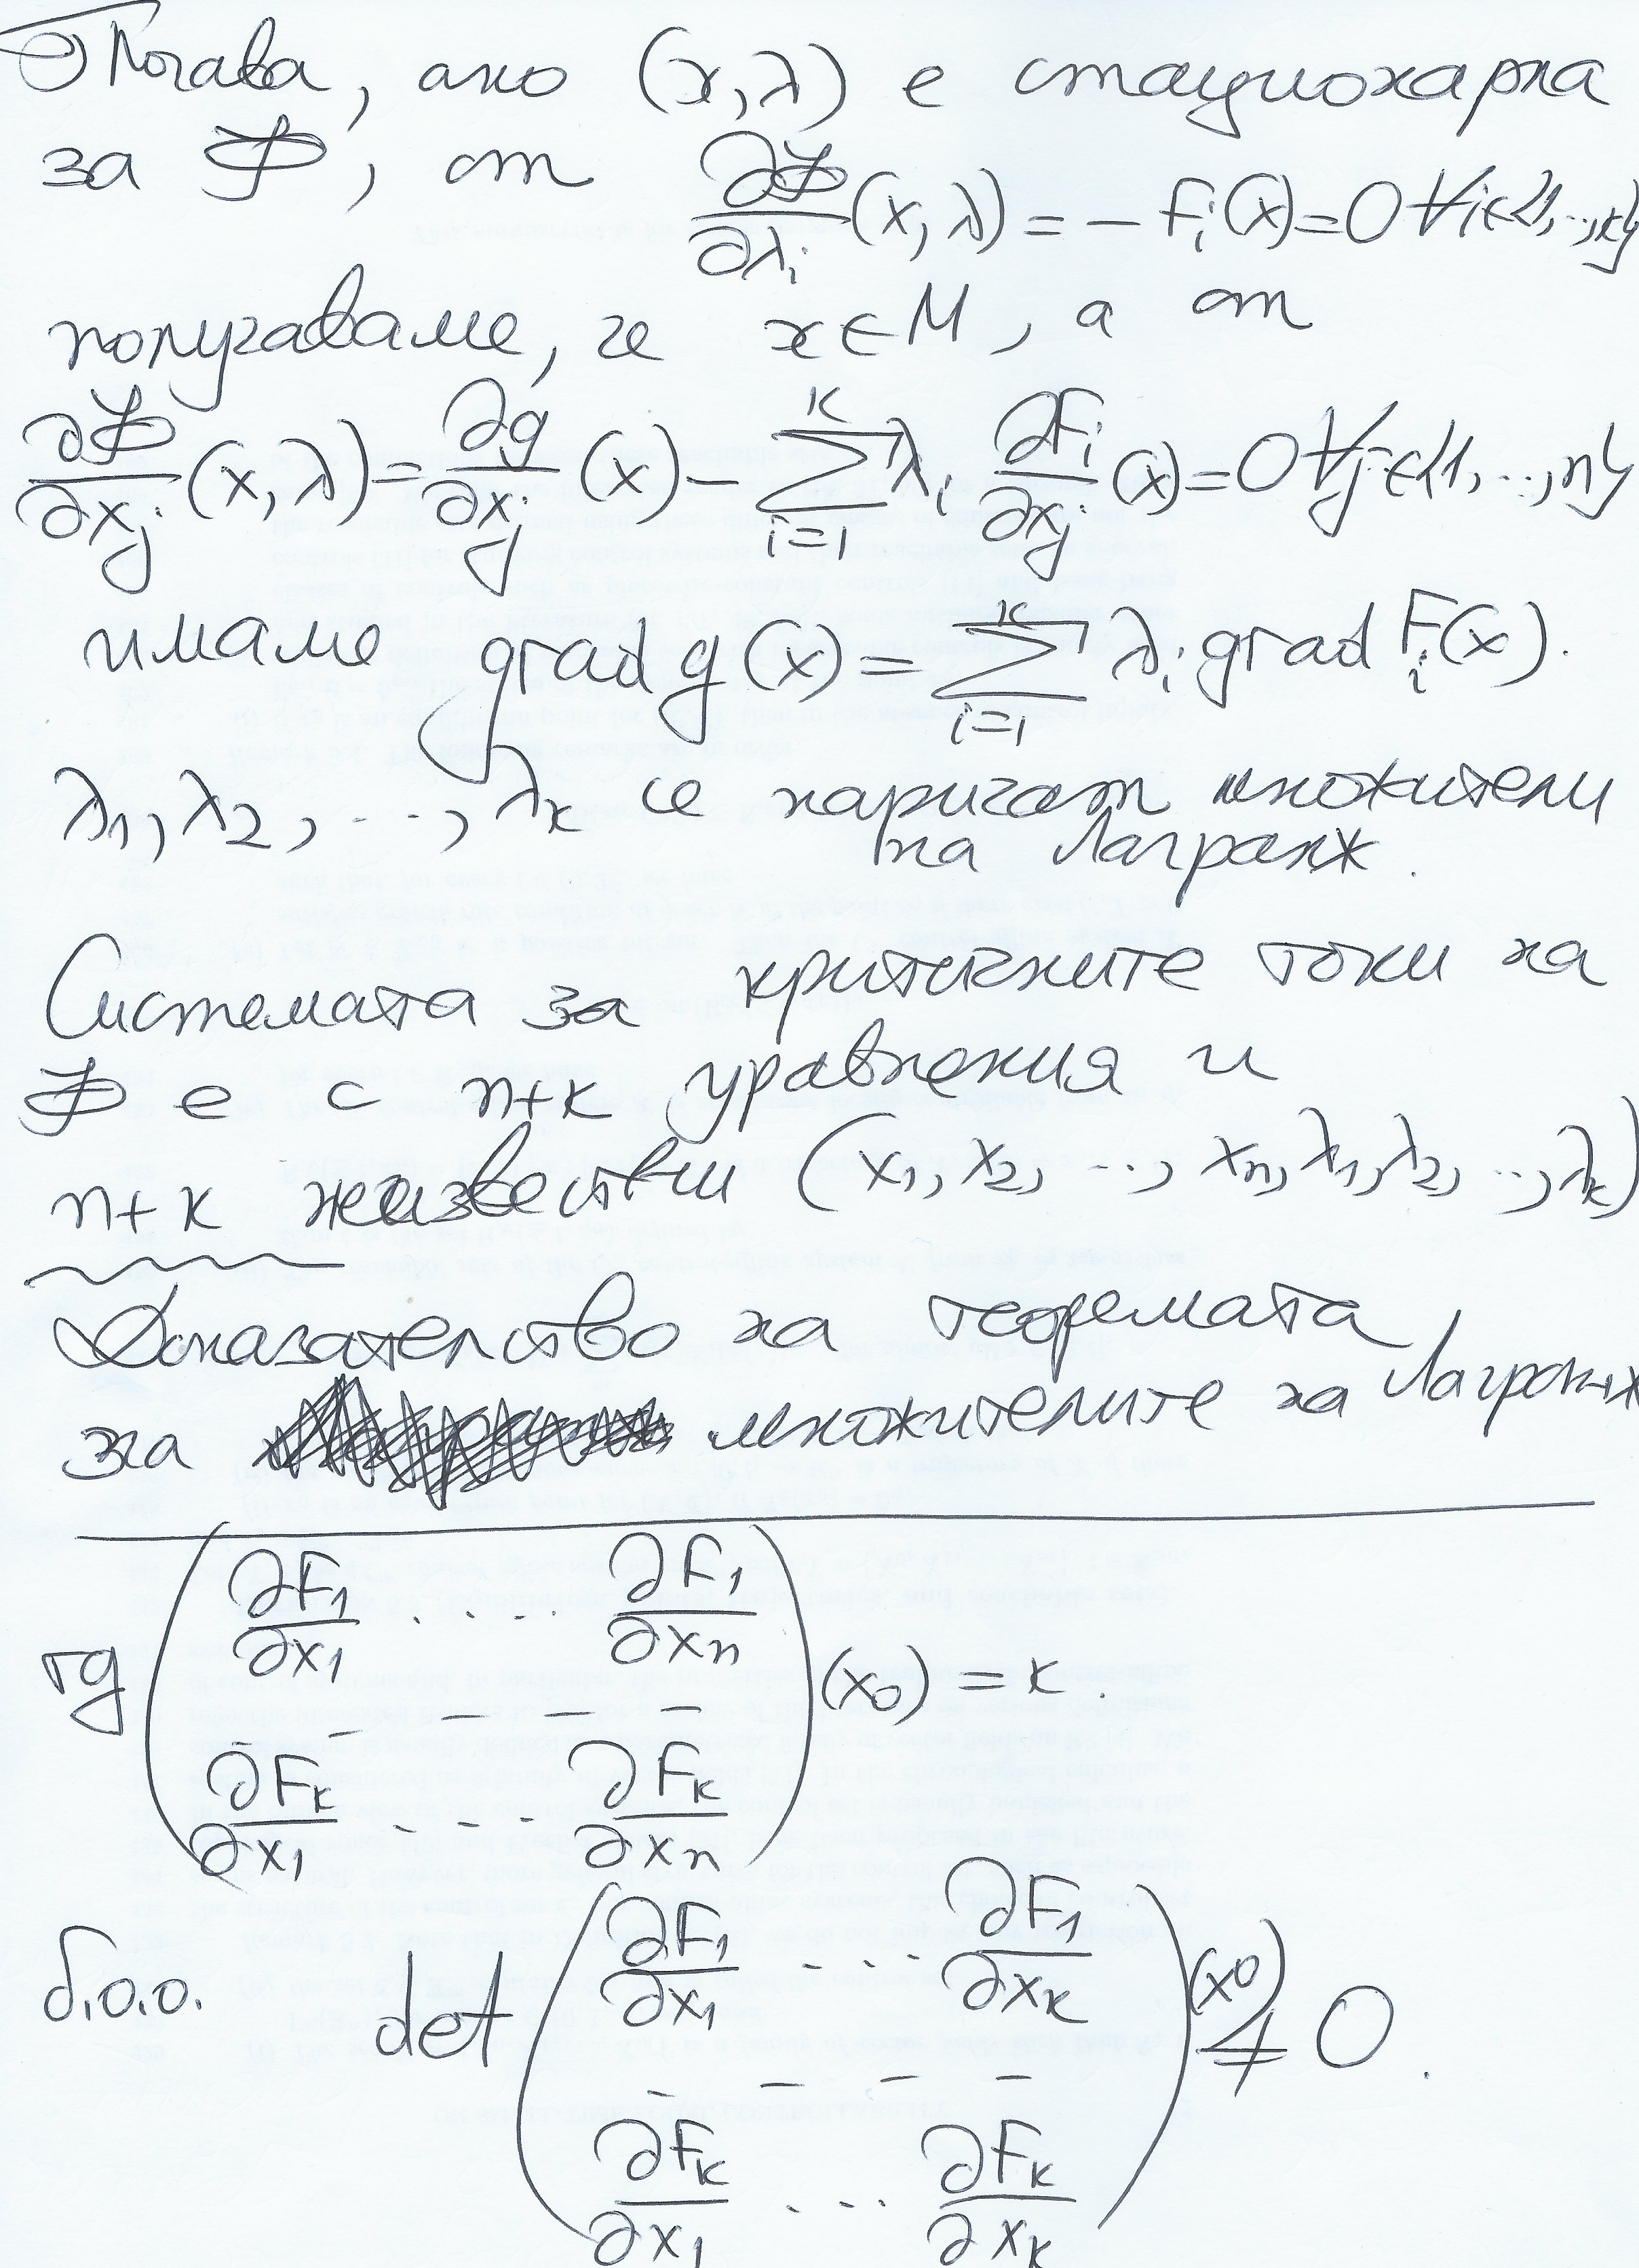 Тогава, ако (x, λ) е стационарна
за Φ, от ∂Φ/∂λᵢ (x, λ) = − Fᵢ(x) = 0 ∀i∈{1, .., k}
получаваме, че x∈M, а от
∂Φ/∂xⱼ (x, λ) = ∂g/∂xⱼ (x) − ∑ᵢ₌₁ᵏ λᵢ ∂Fᵢ/∂xⱼ (x) = 0 ∀j∈{1, .., n}
имаме grad g(x) = ∑ᵢ₌₁ᵏ λᵢ grad Fᵢ(x).
λ₁, λ₂, ..., λₖ се наричат множители
на Лагранж.
Системата за критичните токи на
Φ е с n+k уравнения и
n+k неизвестни (x₁, x₂, ..., xₙ, λ₁, λ₂, .., λₖ)
Доказателство на теоремата
за множителите на Лагранж
rg ( ∂F₁/∂x₁ .... ∂F₁/∂xₙ
− − − − −
∂Fₖ/∂x₁ ... ∂Fₖ/∂xₙ ) (x₀) = k.
б.о.о. det ( ∂F₁/∂x₁ ... ∂F₁/∂xₖ
− − − −
∂Fₖ/∂x₁ ... ∂Fₖ/∂xₖ ) (x⁰) ≠ 0.